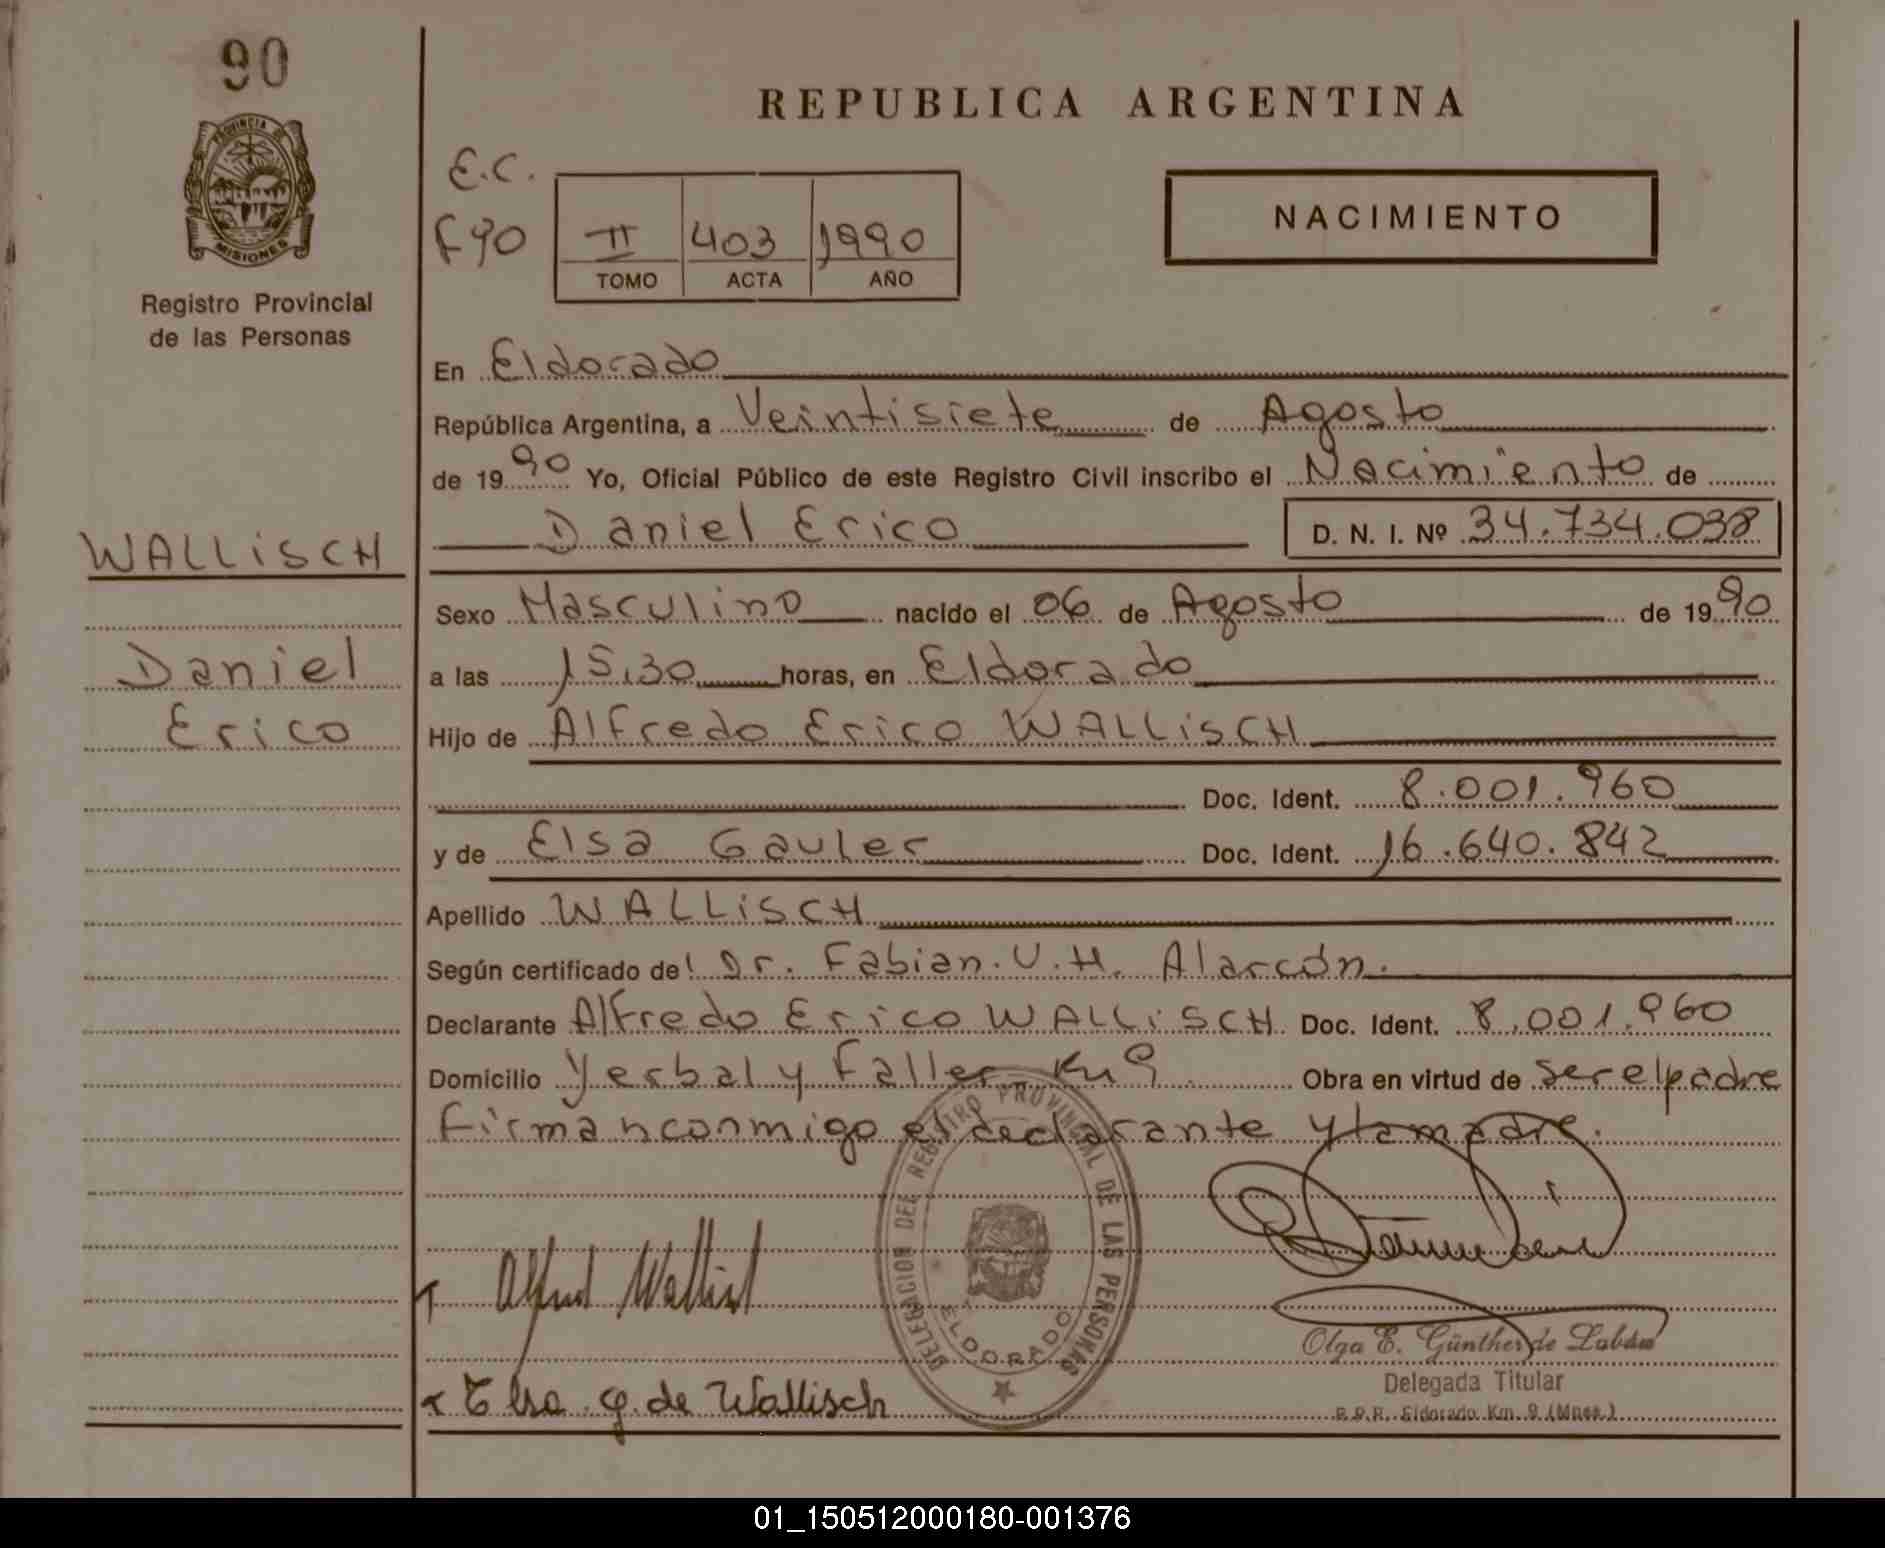 90
PROVINCIA DE
MISIONES
Registro Provincial
de las Personas
WALLISCH
Daniel
Erico
REPUBLICA ARGENTINA
E.C.
F90
II 403 1990
TOMO ACTA AÑO
NACIMIENTO
En Eldorado
República Argentina, a Veintisiete de Agosto
de 1990 Yo, Oficial Público de este Registro Civil inscribo el Nacimiento de
Daniel Erico D. N. I. Nº 34.734.038
Sexo Masculino nacido el 06 de Agosto de 1990
a las 15,30 horas, en Eldorado
Hijo de Alfredo Erico WALLISCH
Doc. Ident. 8.001.960
y de Elsa Gauler Doc. Ident. 16.640.842
Apellido WALLISCH
Según certificado del Dr. Fabian. U.H. Alarcón.
Declarante Alfredo Erico WALLISCH Doc. Ident. 8.001.960
Domicilio Yerbal y Faller Km 9 Obra en virtud de ser el padre
Firman conmigo el declarante y la madre.
DELEGACION DEL REGISTRO PROVINCIAL DE LAS PERSONAS
ELDORADO
Alfred Wallisch
Elsa G. de Wallisch
Olga E. Günther de Labán
Delegada Titular
R.P.P. Eldorado Km. 9 (Mnes.)
01_150512000180-001376